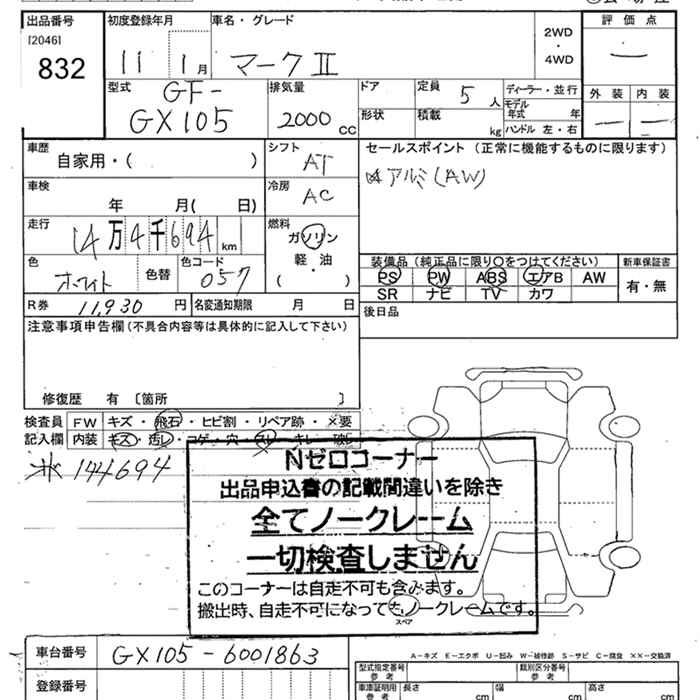 出品番号 初度登録年月 車名・グレード 2WD・4WD 評価点
[2046]
832 11 1月 マークⅡ 一
型式 GF-GX105 排気量 2000 CC ドア 定員 5人 ディーラー・並行 外装 内装
形状 積載 kg モデル年式 年 ハンドル 左・右 一 一
車歴 自家用・( ) シフト AT セールスポイント(正常に機能するものに限ります)
アルミ(AW)
車検 年 月( 日) 冷房 AC
走行 14万4千694 km 燃料 ガソリン
軽・油
( )
色 ホワイト 色替 色コード 057
装備品(純正品に限り〇をつけてください) 新車保証書
PS PW ABS エアB AW 有・無
SR ナビ TV カワ
R券 11,930 円 名変通知期限 月 日 後日品
注意事項申告欄(不具合内容等は具体的に記入して下さい)
修復歴 有〔箇所 〕
検査員 FW キズ・飛石・ヒビ割・リペア跡・×要
記入欄 内装 キズ・汚レ・コゲ・穴・スレ・キレ・破レ
144694
Nゼロコーナー
出品申込書の記載間違いを除き
全てノークレーム
一切検査しません
このコーナーは自走不可も含みます。
搬出時、自走不可になってもノークレームです。
スペア
車台番号 GX105-6001863
A-キズ E-エクボ U-凹み W-補修跡 S-サビ C-腐食 ××-交換済
登録番号
型式指定番号 参考 類別区分番号 参考
車庫証明用 参考 長さ cm 幅 cm 高さ cm